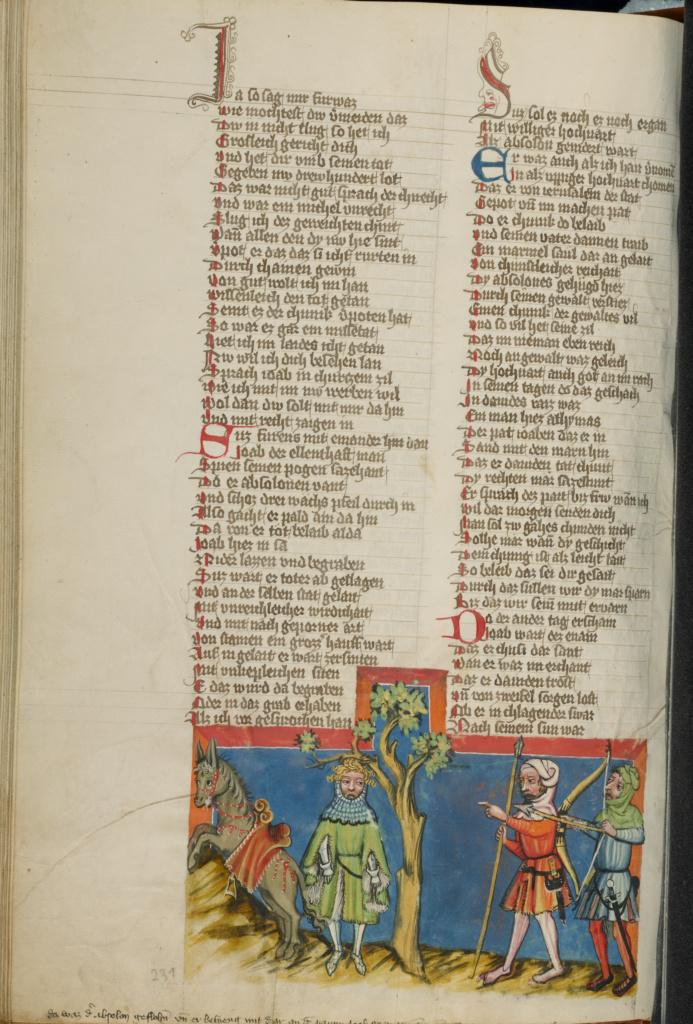 Ja so sag mir fürwar
wie mochtest dw vmeiden daz
Dw in nicht slug so het ich
Grosleich gericht dich
Vnd het dir vmb semen tot
Gegeben nv drewhundert lot
Daz war nicht gut sprach der chnecht
Vnd war ein michel vnrecht
Slug ich dez geweichten chint
Vor allen den dy nw hie sint
Durch chainen gewin
Von gut wolt ich im han
willenleich den tot getan
Semt ez der chunik vpoten hat
So war ez gar ein missetat
Hiet ich im laides icht getan
Nw wil ich dich besehen lan
Sprach ioab in churczem zil
wie ich mit im nw werben wil
wol dan dw solt mit mir da hin
Vnd mit recht zaigen in
Suz furens mit einander hin dan
Ioab der ellenthaft man
Spien seinen pogen sazehant
Do er absolonen vant
Vnd schoz drei wachs pfeil durch in
Also gacht er pald an da hin
Da von er tot belaib alda
Ioab hiez in sa
Nider lazen vnd begraben
Suz wart er toter ab geslagen
Vnd an der selben stat gelait
Mit vnreichleicher wirdichait
Vnd mit nach geporner art
Von stainen ein grozz hauff wart
Auf in gelait er wart zersniten
Mit vnhepleichen siten
E daz wurd da begraben
Oder in daz grab erhaben
Alz ich vor gesprochen han
Suz sol ez noch er noch ergan
Mit williger hochuart
Alz absolon gemert wart
Er war auch alz ich han vnomen
In alz vppiger hochuart chomen
Daz er von ierusalem der stat
Gepot vnd im machen pat
Do er chunik do belaib
Vnd seinen vater dannen traib
Ein marmel saul dar an gelait
Von chunstleicher reichait
Dy absolones gehugd hiez
Durch seinen gewalt verstiez
Einen chunik der gewaltes vil
Vnd so vil het seine zil
Daz im nieman eben reich
Noch an gewalt waz geleich
Dy hochuart auch got an im rach
In seinen tagen do daz geschach
In dauides rais waz
Ein man hiez achymas
Der pat ioaben daz er in
Sand mit den marn hin
Daz er dauiden tat chunt
Dy rechten mar sazestunt
Er sprach dez pait biz frw wan ich
wil dar morgen senden dich
Man sol zw gahes chunden nicht
Solhe mar wan dy geschicht
Dem chunig ist alz leicht lait
So beleib daz sei dir gesait
Durch daz sullen wir dy mar sparn
Biz daz wir sein mit ervarn
Do der ander tag erschain
Ioab wart der enain
Daz er chusi dar sant
wan er waz im erchant
Daz er dauiden trost
Vn von zweifel sorgen lost
Ob er in chlagender swar
Nach seinem sun war
231